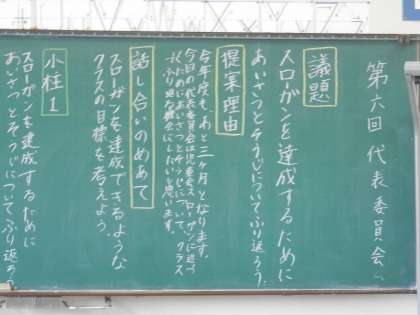 第六回 代表委員会
議題
スローガンを達成するために
あいさつとそうじについてふり返ろう。
提案理由
今年度も、あと三ヶ月となります。
今回の代表委員会は児童会スローガンに近づ
くためにあいさつとそうじについて、クラス
でふり返る機会にしたいと思います。
話し合いのめあて
スローガンを達成できるような
クラスの目標を考えよう。
小柱1
スローガンを達成するために
あいさつとそうじについてふり返ろう